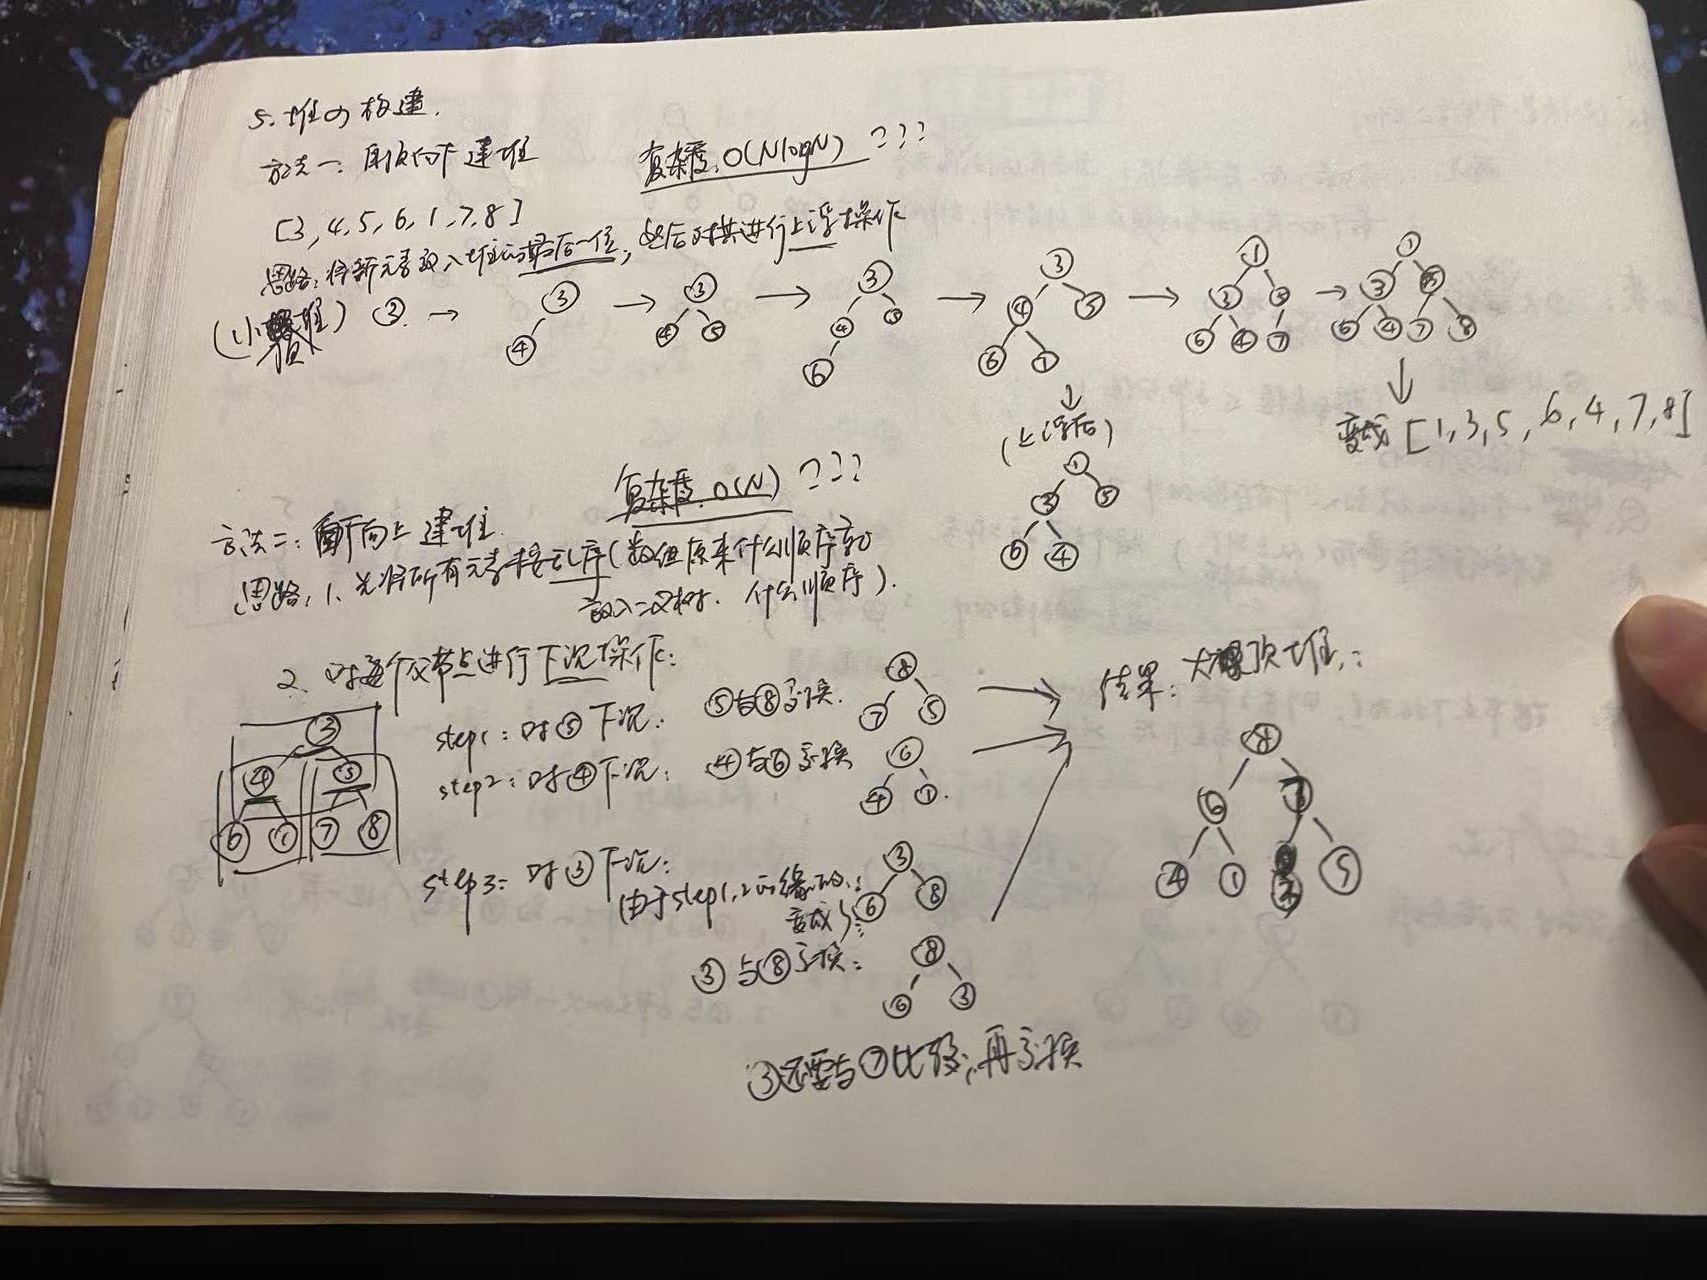 5. 堆の构建.
方法一: 自顶向下建堆
复杂度: O(NlogN) ???
[3, 4, 5, 6, 1, 7, 8]
思路: 将新元素放入堆的最后一位, 然后对其进行上浮操作
(小顶堆) ③ → ③ ④ → ③ ④ ⑤ → ③ ④ ⑤ ⑥ → ③ ④ ⑤ ⑥ ① → ① ③ ⑤ ⑥ ④ ⑦ → ① ③ ⑤ ⑥ ④ ⑦ ⑧
↓
(上浮后)
① ③ ⑤ ⑥ ④
↓
变成 [1, 3, 5, 6, 4, 7, 8]
复杂度: O(N) ???
方法二: 自下向上建堆.
思路: 1. 先将所有元素按乱序(数组原来什么顺序就
放入二叉树. 什么顺序).
2. 对每个父节点进行下沉操作:
③
④ ⑤
⑥ ① ⑦ ⑧
step1: 对⑤下沉: ⑤与⑧交换.
⑧
⑦ ⑤
step2: 对④下沉: ④与⑥交换
⑥
④ ①.
step3: 对③下沉:
(由于step1, 2的缘故,
变成):
③
⑥ ⑧
③与⑧交换:
⑧
⑥ ③
③还要与⑦比较, 再交换
结果: 大顶堆:
⑧
⑥ ⑦
④ ① ③ ⑤